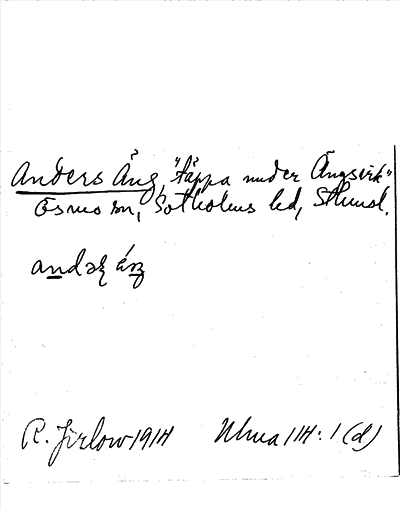 Anders Äng, "täppa under Ängsvik"
Ösmo sn, Sotholms hd, Sthmsl.
R. Jirlow 1914 Ulma 114:1(d)